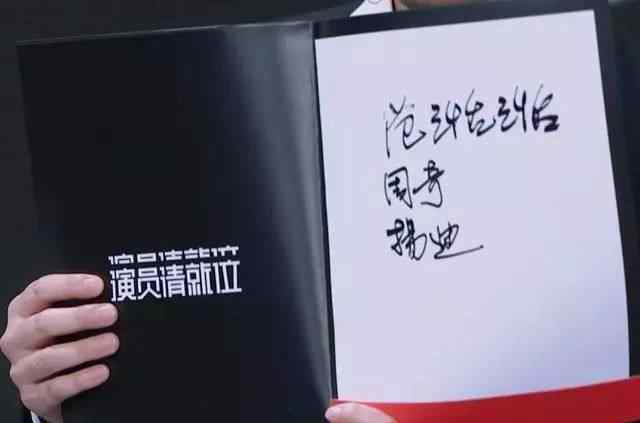 演员请就位
范湉湉
周奇
杨迪